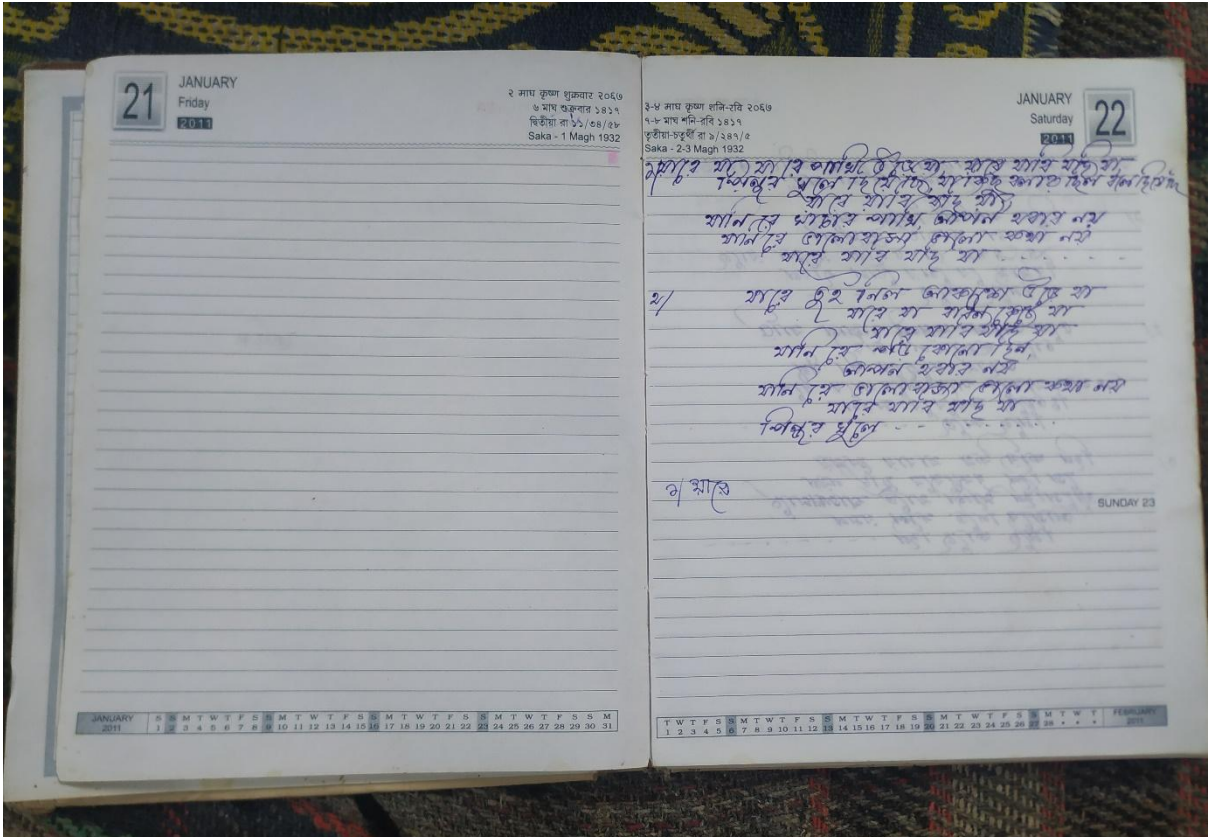 21
JANUARY
Friday
2011
२ माघ कृष्ण शुक्रवार २०६७
৬ মাঘ শুক্রবার ১৪১৭
द्वितीया रा ११/३४/५८
Saka - 1 Magh 1932
JANUARY
2011
S S M T W T F S S M T W T F S S M T W T F S S M T W T F S S M
1 2 3 4 5 6 7 8 9 10 11 12 13 14 15 16 17 18 19 20 21 22 23 24 25 26 27 28 29 30 31
३-४ माघ कृष्ण शनि-रवि २०६७
৭-৮ মাঘ শনি-রবি ১৪১৭
तृतीया-चतुर्थी रा ९/२४१/५
Saka - 2-3 Magh 1932
JANUARY
Saturday
2011
22
১/ যারে যা যা রে পাখি উড়ে যা যারে যাবি যদি যা
পিঞ্জর খুলে দিয়েছি যা কিছু বলার ছিল বলে দিয়েছি
যারে যাবি যদি যা
যানি রে খাচার পাখি আপন হবার নয়
যানি রে ভালোবাসা ভালো কথা নয়
যারে যাবি যদি যা . . . . . . . .
২/ যারে তুই নিল আকাশে উড়ে যা
যারে যা বাধন কেটে যা
যারে যাবি যদি যা
যানি রে কোনো দিন,
আপন হবার নয়
যানি রে ভালোবাসা ভালো কথা নয়
যারে যাবি যদি যা
পিঞ্জর খুলে . . . . . . . .
১/ যারে
SUNDAY 23
T W T F S S M T W T F S S M T W T F S S M T W T F S S M T W T
1 2 3 4 5 6 7 8 9 10 11 12 13 14 15 16 17 18 19 20 21 22 23 24 25 26 27 28 * * *
FEBRUARY
2011